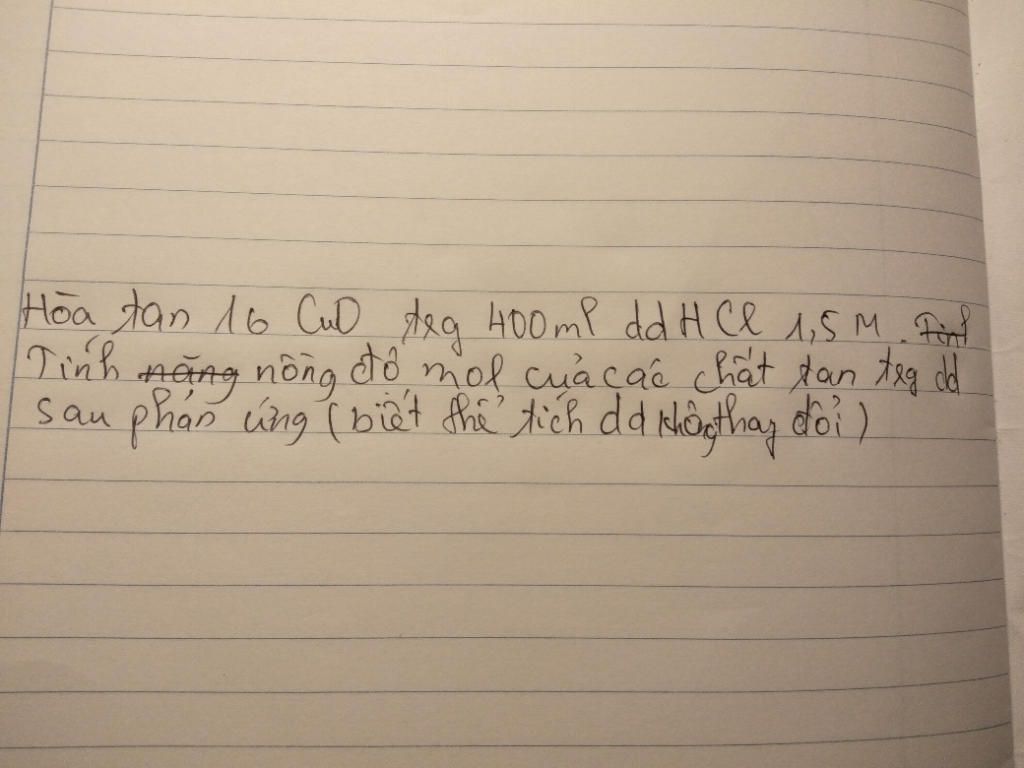 Hòa tan 16 CuO trg 400ml dd HCl 1,5 M. Tính
Tính năng nồng độ mol của các chất tan trg dd
sau phản ứng (biết thể tích dd không thay đổi)